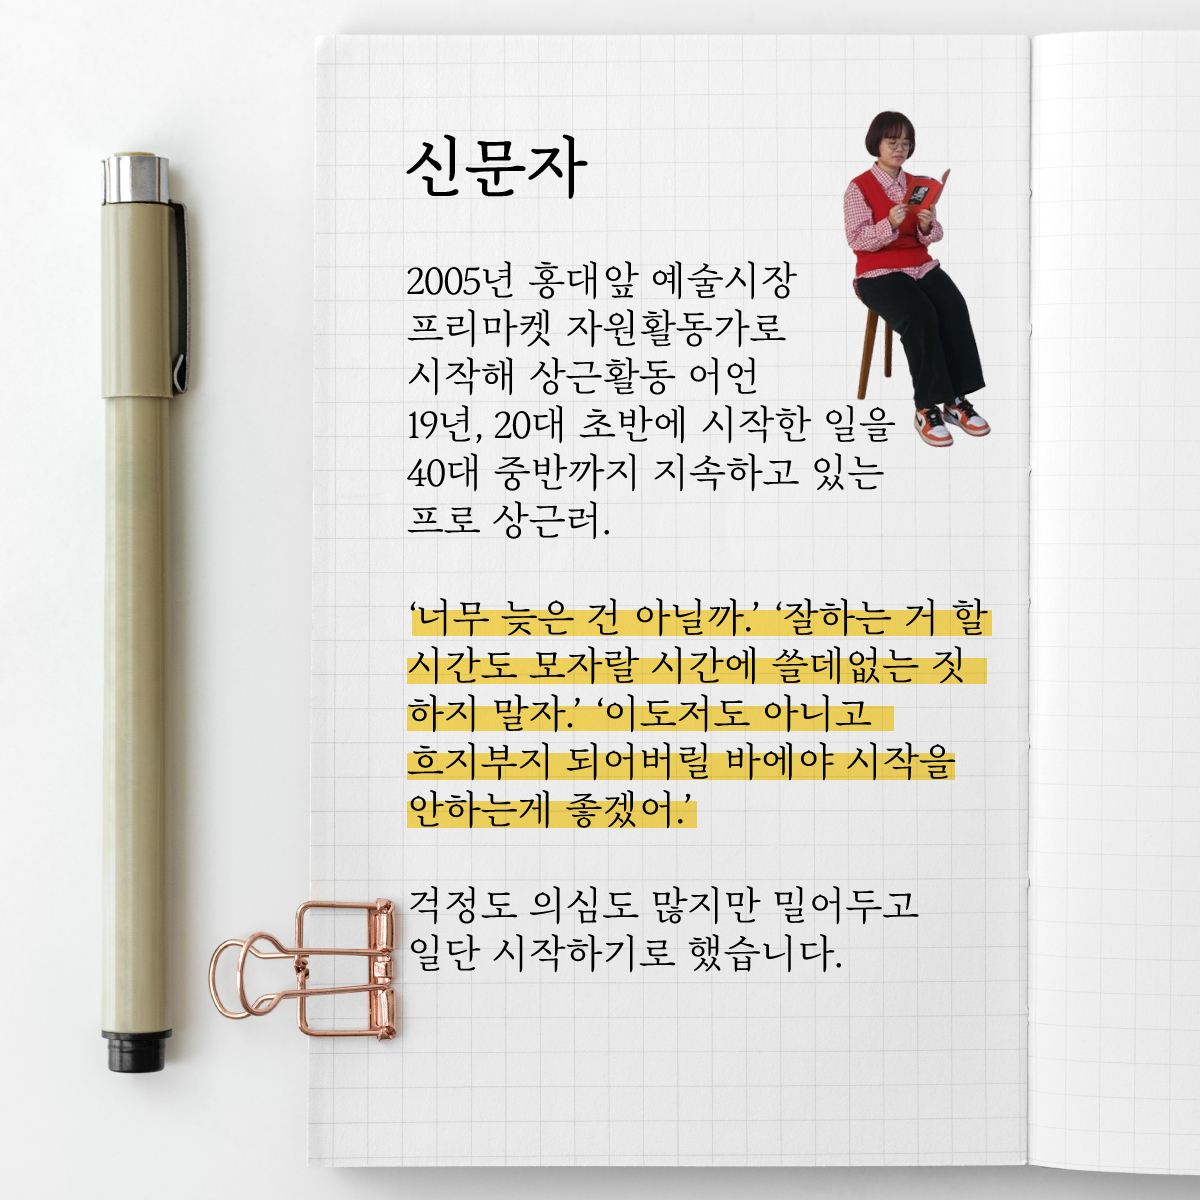 신문자
2005년 홍대앞 예술시장
프리마켓 자원활동가로
시작해 상근활동 어언
19년, 20대 초반에 시작한 일을
40대 중반까지 지속하고 있는
프로 상근러.
‘너무 늦은 건 아닐까.’ ‘잘하는 거 할
시간도 모자랄 시간에 쓸데없는 짓
하지 말자.’ ‘이도저도 아니고
흐지부지 되어버릴 바에야 시작을
안하는게 좋겠어.’
걱정도 의심도 많지만 밀어두고
일단 시작하기로 했습니다.